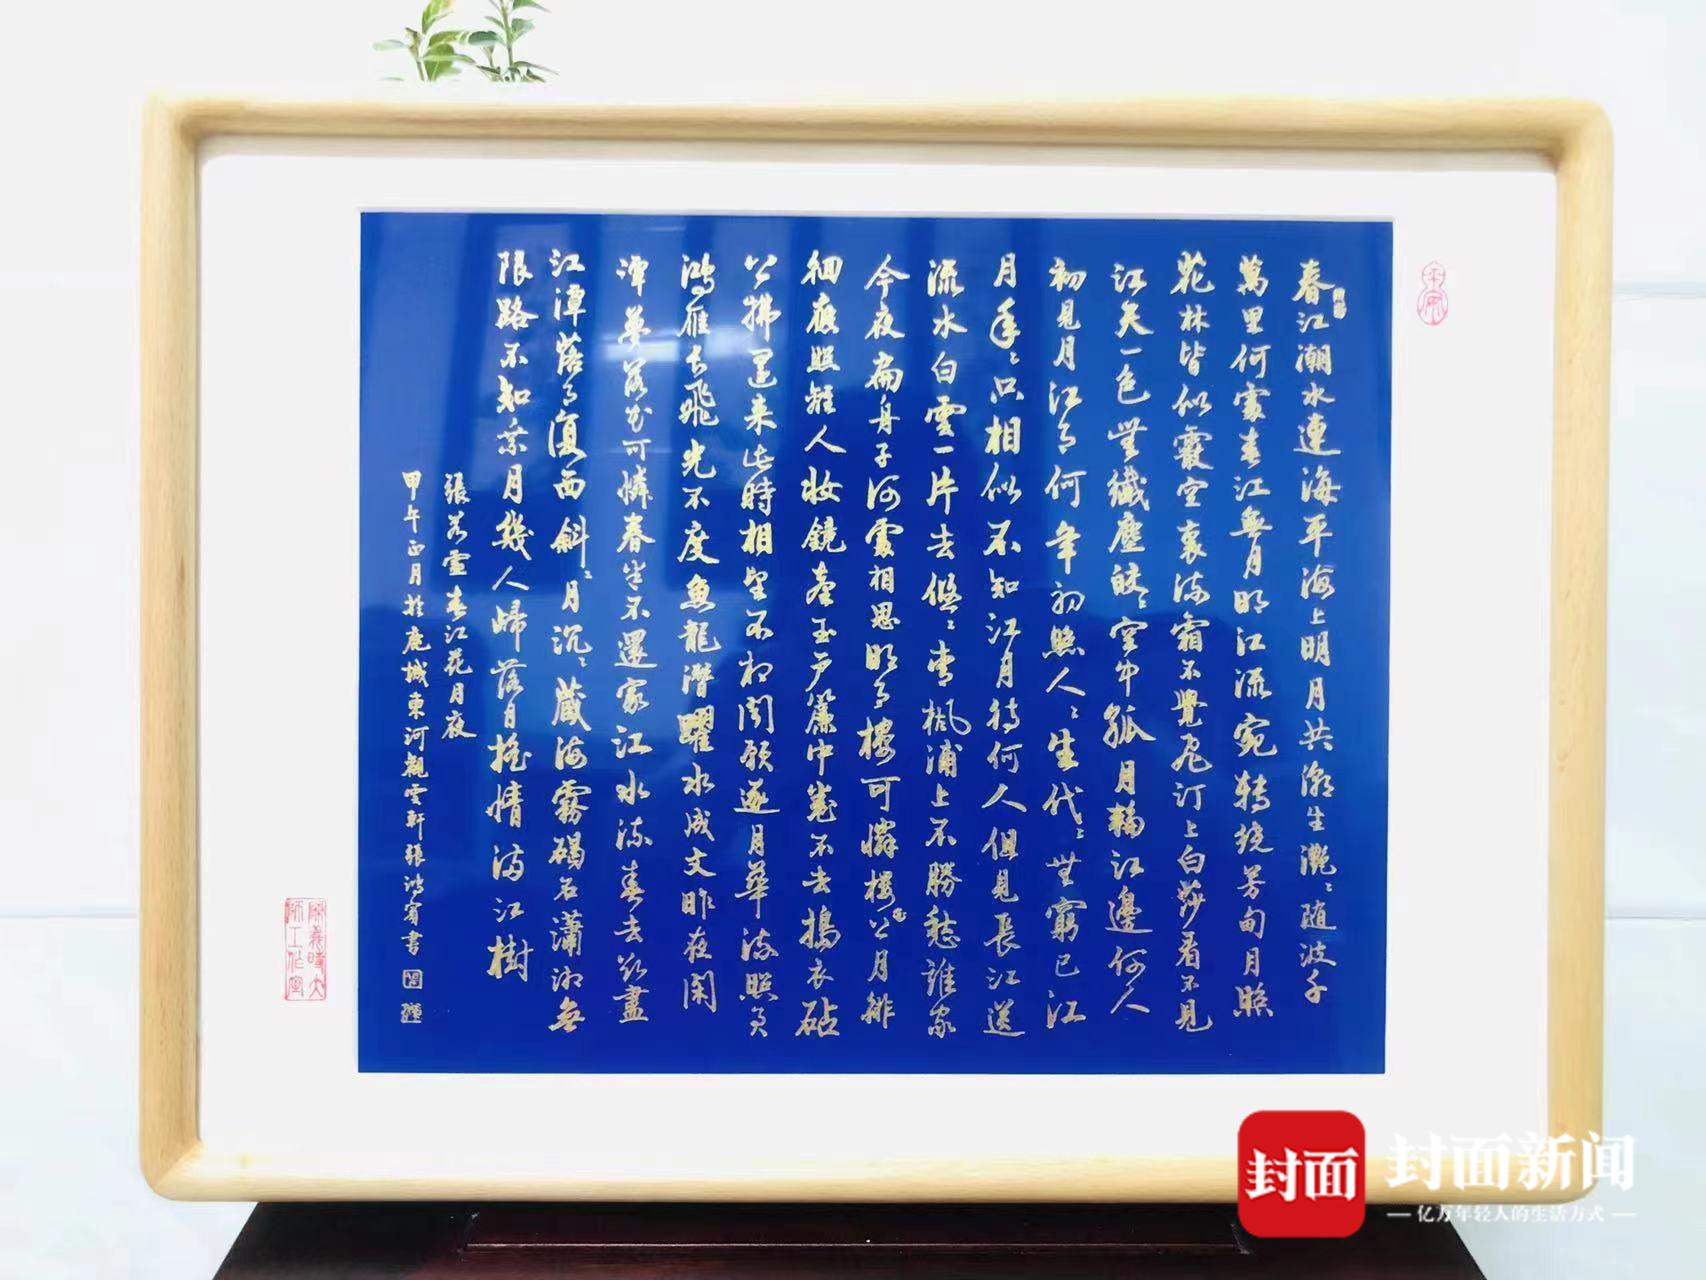 春江潮水連海平海上明月共潮生灩〻随波千
萬里何處春江無月明江流宛轉繞芳甸月照
花林皆似霰空裏流霜不覺飛汀上白莎看不見
江天一色無纖塵皎〻空中孤月輪江邊何人
初見月江月何年初照人人〻生代〻無窮已江
月年〻只相似不知江月待何人但見長江送
流水白雲一片去悠〻青楓浦上不勝愁誰家
今夜扁舟子何處相思明月樓可憐樓上月徘
徊應照離人妝鏡臺玉戶簾中卷不去搗衣砧
上拂還来此時相望不相聞願逐月華流照君
鴻雁長飛光不度魚龍潛躍水成文昨夜閑
潭夢落花可憐春半不還家江水流春去欲盡
江潭落月復西斜〻月沉〻藏海霧碣石瀟湘無
限路不知乘月幾人歸落月搖情满江樹
張若虛春江花月夜
甲午正月於鹿城東河觀雲軒張鴻賓書
封面
封面新闻
亿万年轻人的生活方式